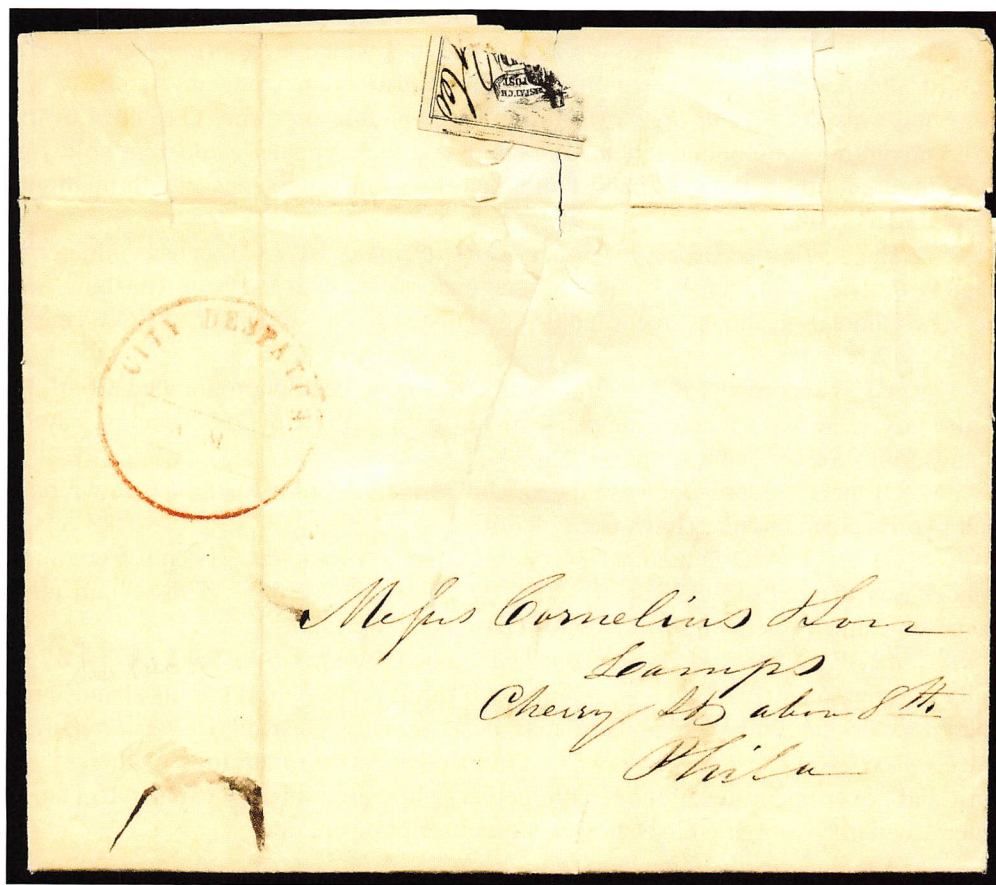 SPATCH
POST
CITY DESPATCH
Messrs Cornelius & Son
Lamps
Cherry St above 8th
Phila